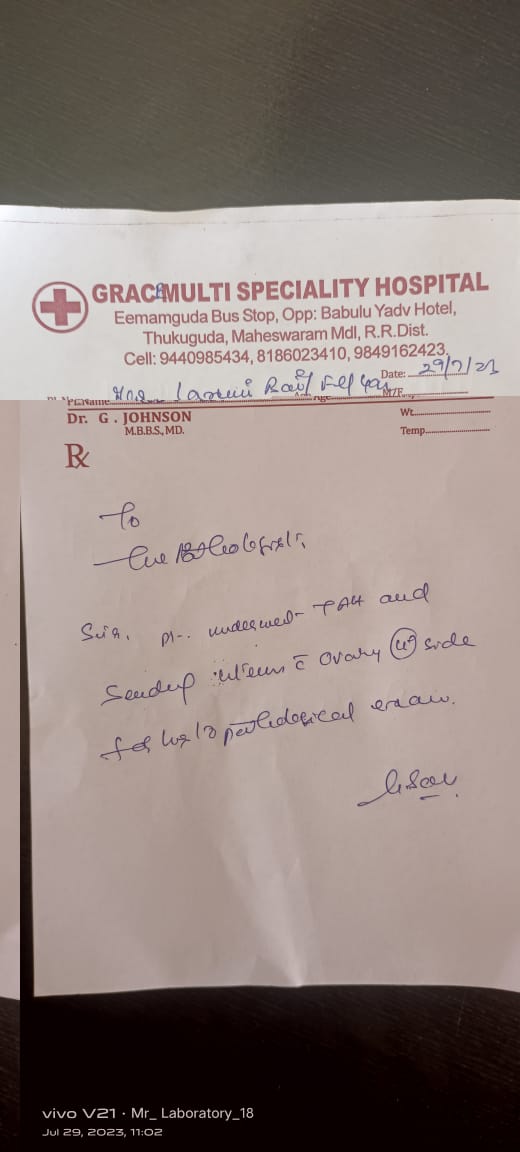 GRACE MULTI SPECIALITY HOSPITAL
Eemamguda Bus Stop, Opp: Babulu Yadv Hotel,
Thukuguda, Maheswaram Mdl, R.R.Dist.
Cell: 9440985434, 8186023410, 9849162423.
Date: 29/7/23
Name
Age M/F
Dr. G. JOHNSON
M.B.B.S., MD.
Wt.
Temp.
℞
To
The Pathologist,
Sir, pt. underwent TAH and
Sending uterus c̄ ovary side
for histopathological exam.
vivo V21 · Mr_ Laboratory_18
Jul 29, 2023, 11:02